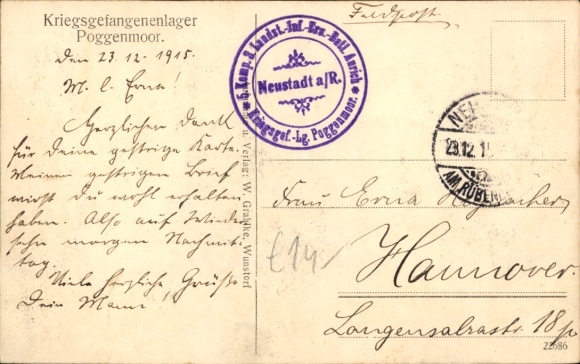 Kriegsgefangenenlager
Poggenmoor.
Den 23.12.1915.
M. l. Erna!
Herzlichen Dank
für Deine gestrige Karte.
Meinen gestrigen Brief
wirst Du wohl erhalten
haben. Also auf Wieder
sehn morgen Nachmit-
tag.
Viele herzliche Grüße
Dein Mann!
u. Verlag: W. Grahlke, Wunstorf
5. Komp. 3. Landst.-Inf.-Ers.-Batl. Aurich
Neustadt a/R.
Kriegsgef.-Lg. Poggenmoor.
Feldpost.
23.12.15
AM RÜBENB
Frau Erna
Hannover.
Langensalzastr. 18 p
£14
22686